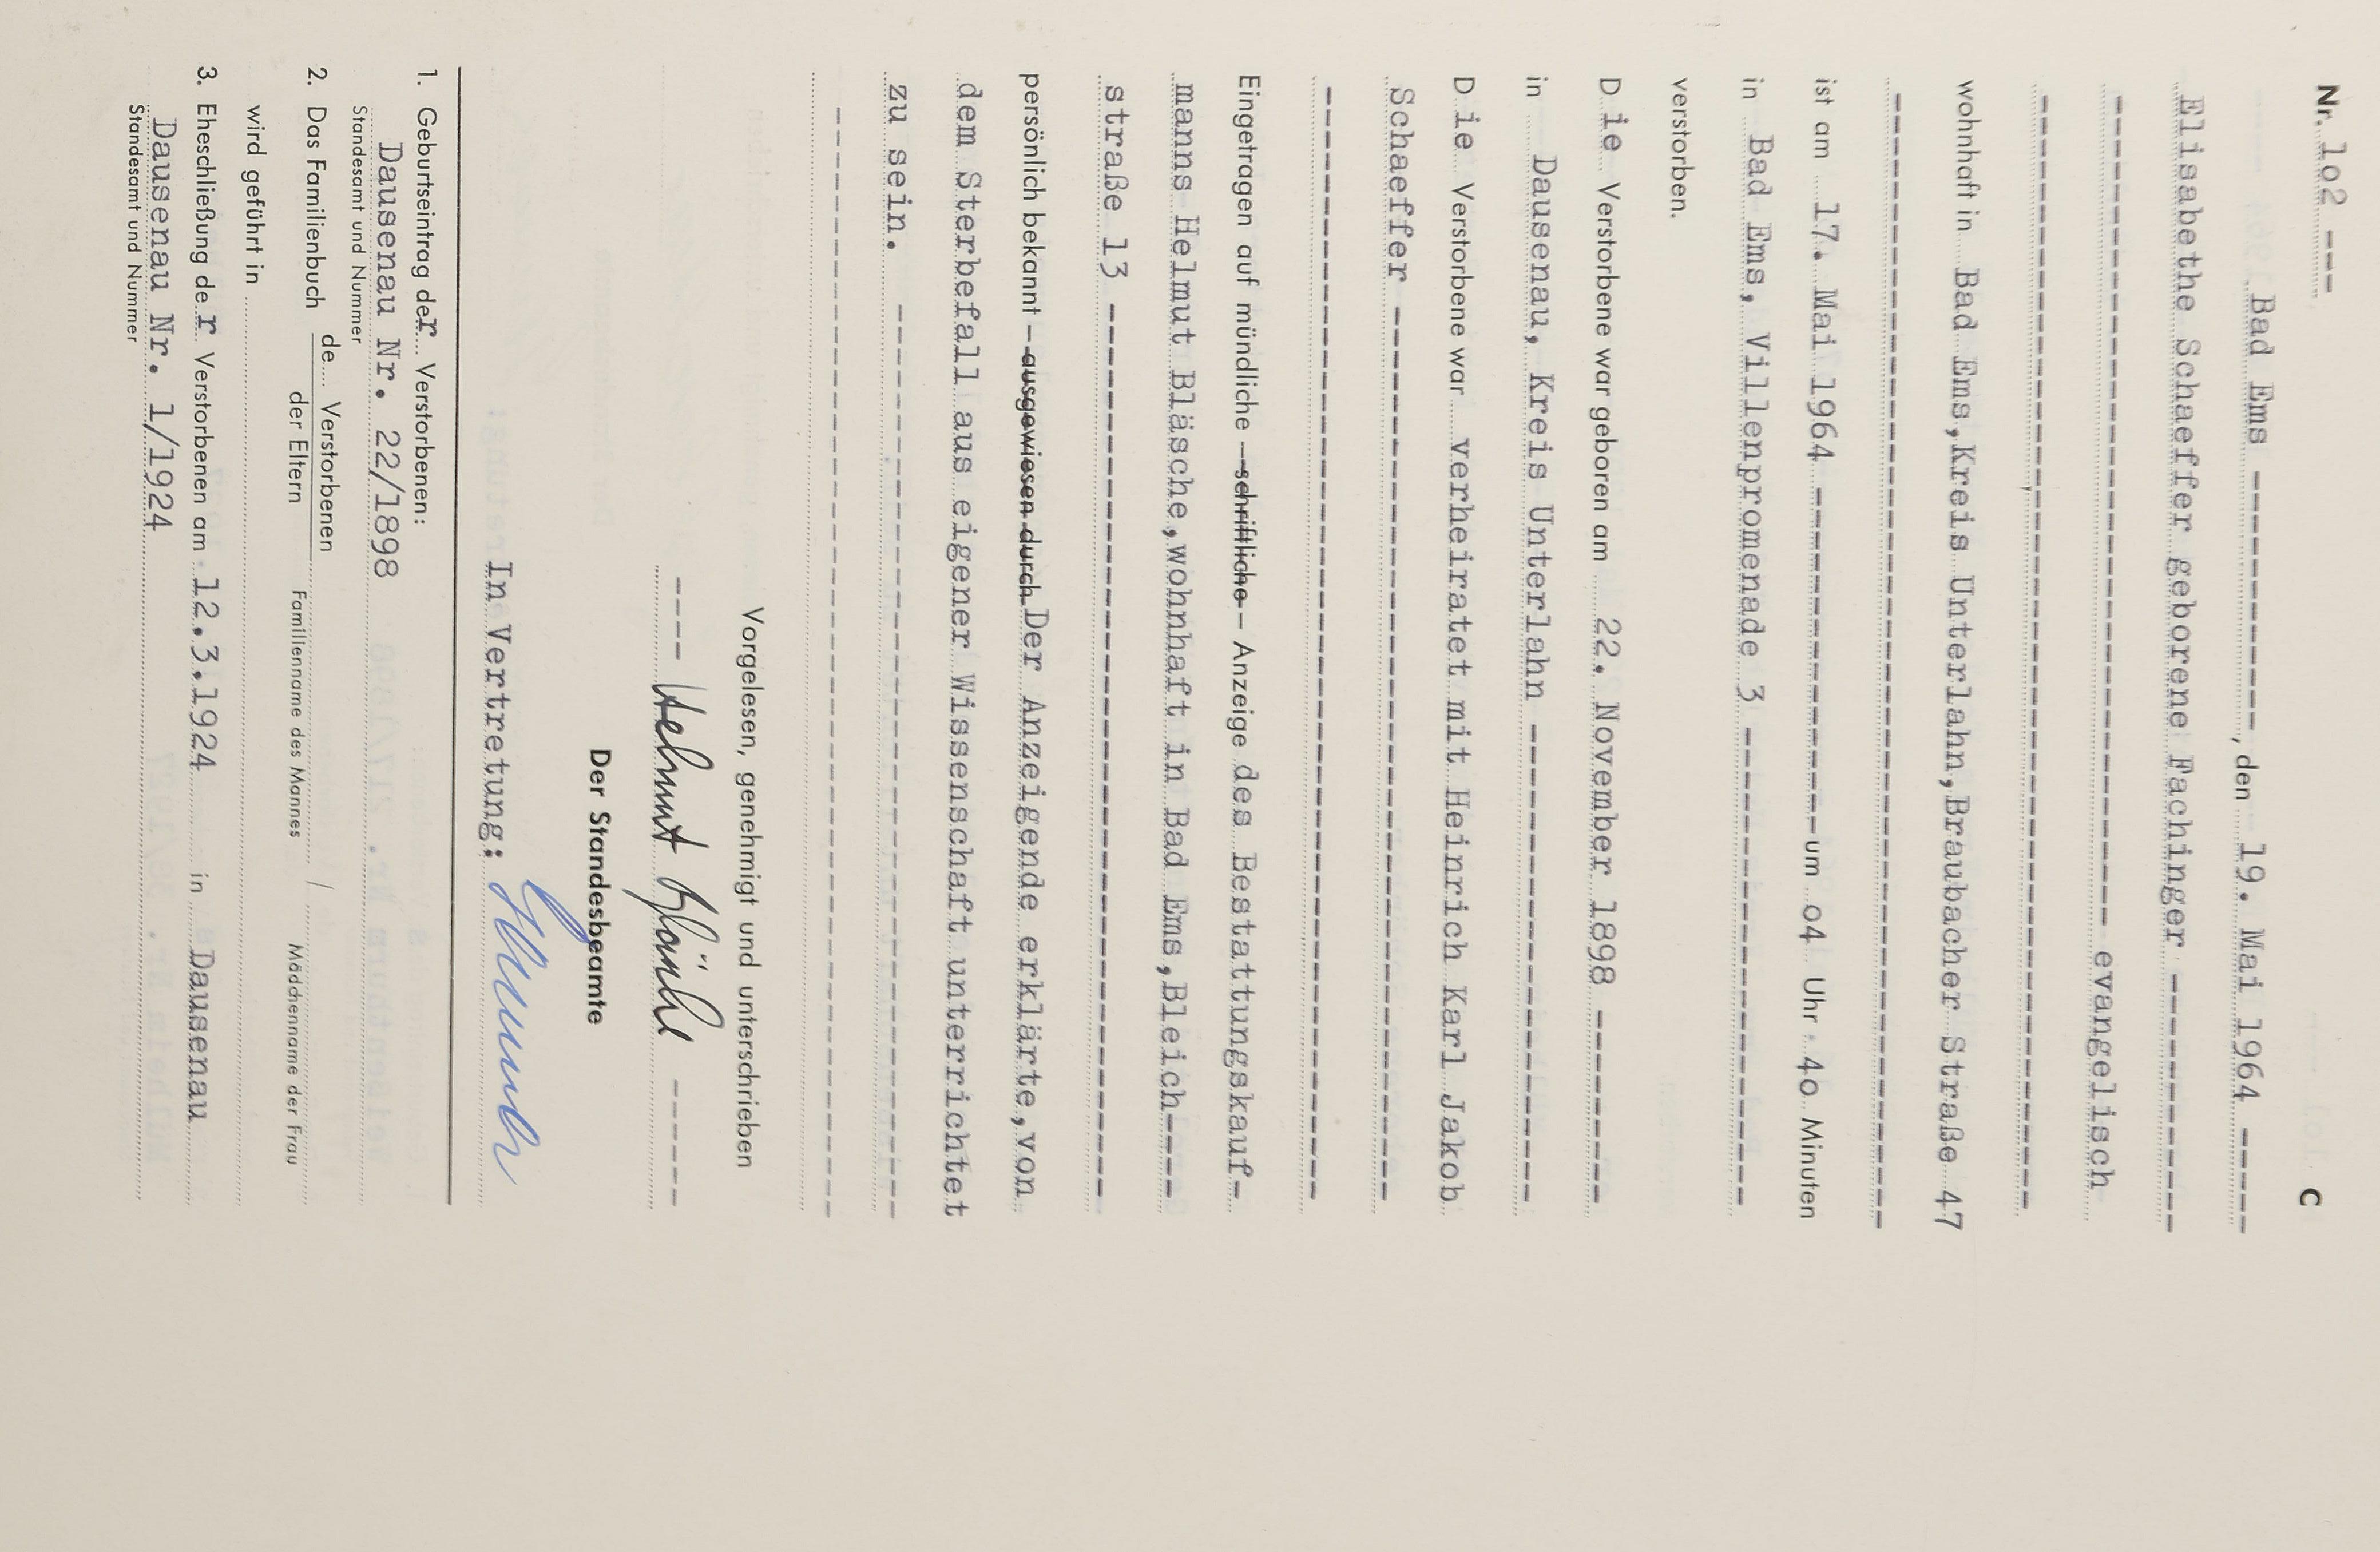 Nr. 1o2 ---- C
Bad Ems -----------, den 19. Mai 1964 -----
Elisabethe Schaeffer geborene Fachinger -----------
---------------------------------- evangelisch
----------------------------------------------
wohnhaft in Bad Ems,Kreis Unterlahn,Braubacher Straße 47
----------------------------------------------
ist am 17. Mai 1964 --------------- um o4 Uhr 4o Minuten
in Bad Ems, Villenpromenade 3 --------------------
verstorben.
D ie Verstorbene war geboren am 22. November 1898 --------
in Dausenau, Kreis Unterlahn --------------------
D ie Verstorbene war verheiratet mit Heinrich Karl Jakob
Schaeffer --------------------------------------
----------------------------------------------
Eingetragen auf mündliche – schriftliche – Anzeige des Bestattungskauf-
manns Helmut Bläsche,wohnhaft in Bad Ems,Bleich----
straße 13 --------------------------------------
persönlich bekannt – ausgewiesen durch Der Anzeigende erklärte,von
dem Sterbefall aus eigener Wissenschaft unterrichtet
zu sein. --------------------------------------
----------------------------------------------
Vorgelesen, genehmigt und unterschrieben
---- Helmut Bläsche -----
Der Standesbeamte
In Vertretung:
1. Geburtseintrag der Verstorbenen:
Dausenau Nr. 22/1898
Standesamt und Nummer
2. Das Familienbuch de Verstorbenen
der Eltern Familienname des Mannes / Mädchenname der Frau
wird geführt in
3. Eheschließung der Verstorbenen am 12.3.1924 in Dausenau
Dausenau Nr. 1/1924
Standesamt und Nummer